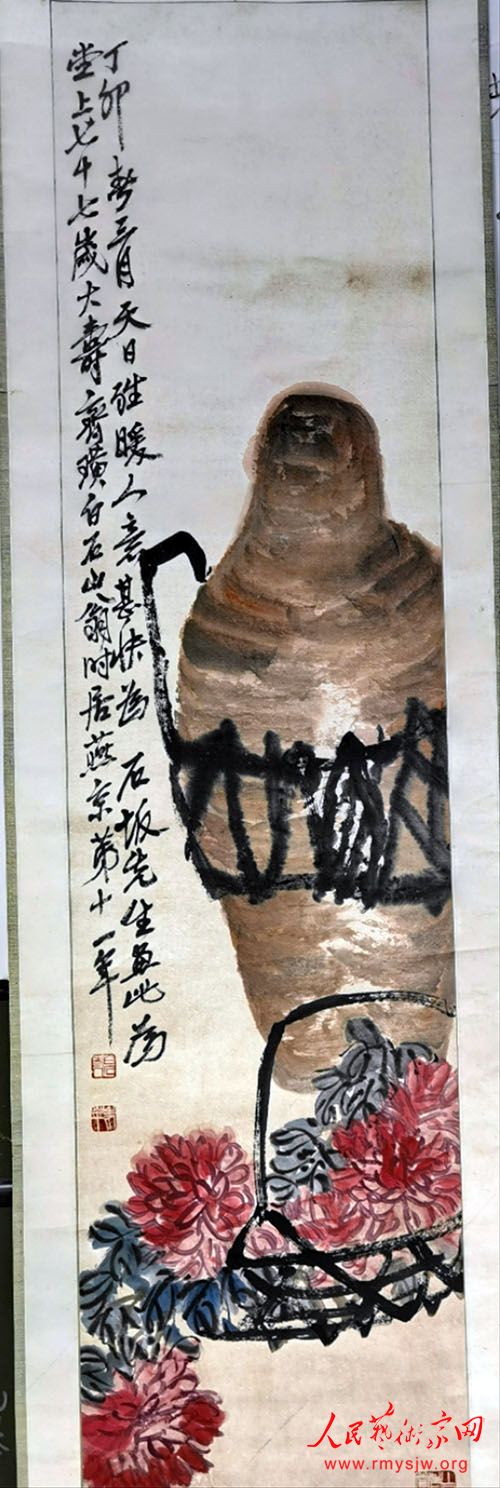 丁卯春三月天日雖暖人意甚快為 石坂先生画此為
堂上七十七歲大壽齊璜白石山翁时居燕京第十一年
人民藝術家网
www.rmysjw.org